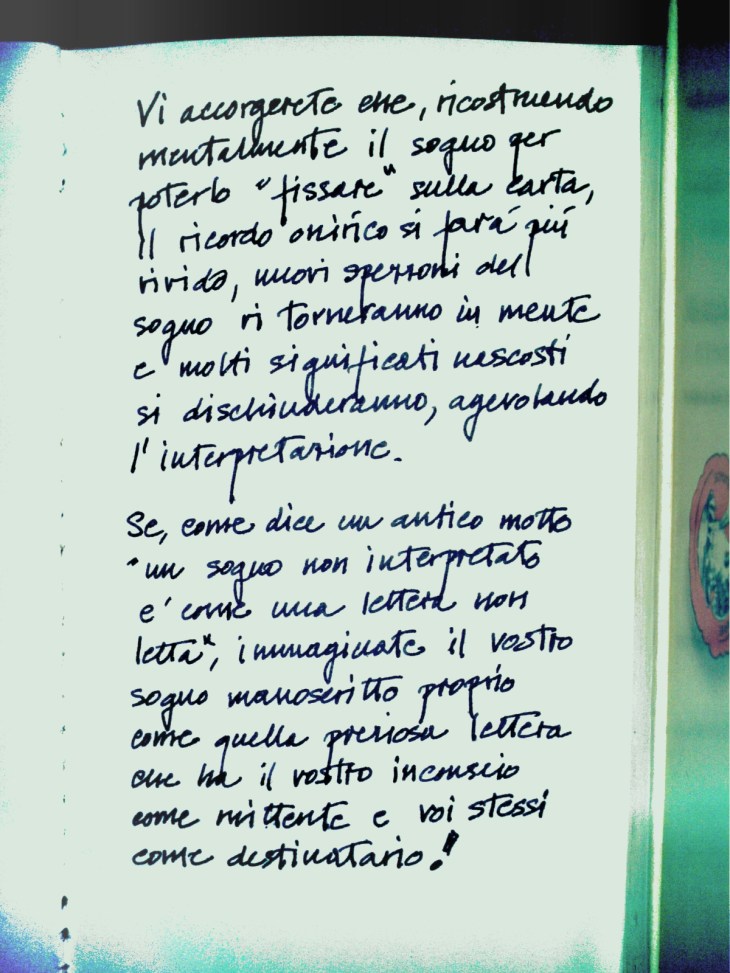 Vi accorgerete che, ricostruendo
mentalmente il sogno per
poterlo "fissare" sulla carta,
il ricordo onirico si farà più
vivido, nuovi spezzoni del
sogno vi torneranno in mente
e molti significati nascosti
si dischiuderanno, agevolando
l'interpretazione.
Se, come dice un antico motto
"un sogno non interpretato
e' come una lettera non
letta", immaginate il vostro
sogno manoscritto proprio
come quella preziosa lettera
che ha il vostro inconscio
come mittente e voi stessi
come destinatario!